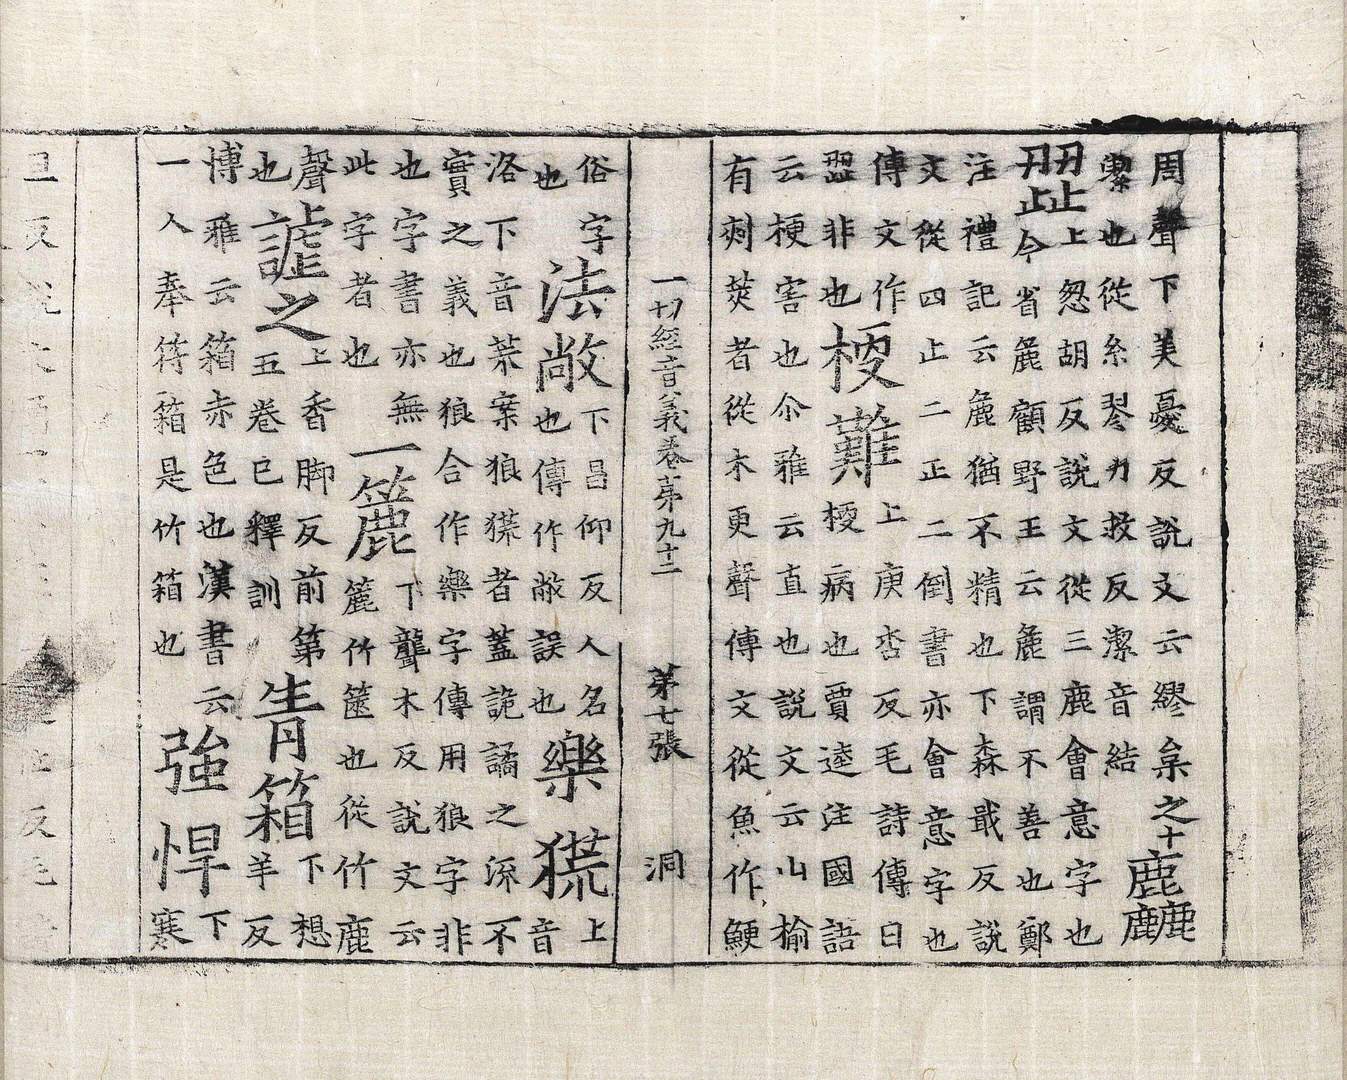 周聲下美憂反説文云繆枲之十
絜也從糸翏力救反潔音結
麤
歰
上忽胡反説文從三鹿會意字也
今省麁顧野王云麁謂不善也鄭
注禮記云麁猶不精也下森戢反説
文從四止二正二倒書亦會意字也
傳文作
歰非也
梗難
上庚杏反毛詩傳曰
梗病也賈逵注國語
云梗害也尒雅云直也説文云山榆
有刾莢者從木更聲傳文從魚作鯁
一切經音義卷第九十二 第七張 洞
俗字
也
法敞
下昌仰反人名
也傳作敞誤也
樂㹰
上
音
洛下音荒案狼㹰者蓋詭譎之流不
實之義也狼合作樂字傳用狼字非
也字書亦無
此字者也
一簏
下聾木反説文云
簏竹篋也從竹鹿
聲
也
謔之
上香脚反前第
五卷已釋訓
青箱
下想
羊反
博雅云箱赤色也漢書云
一人奉符箱是竹箱也
強悍
下
寒